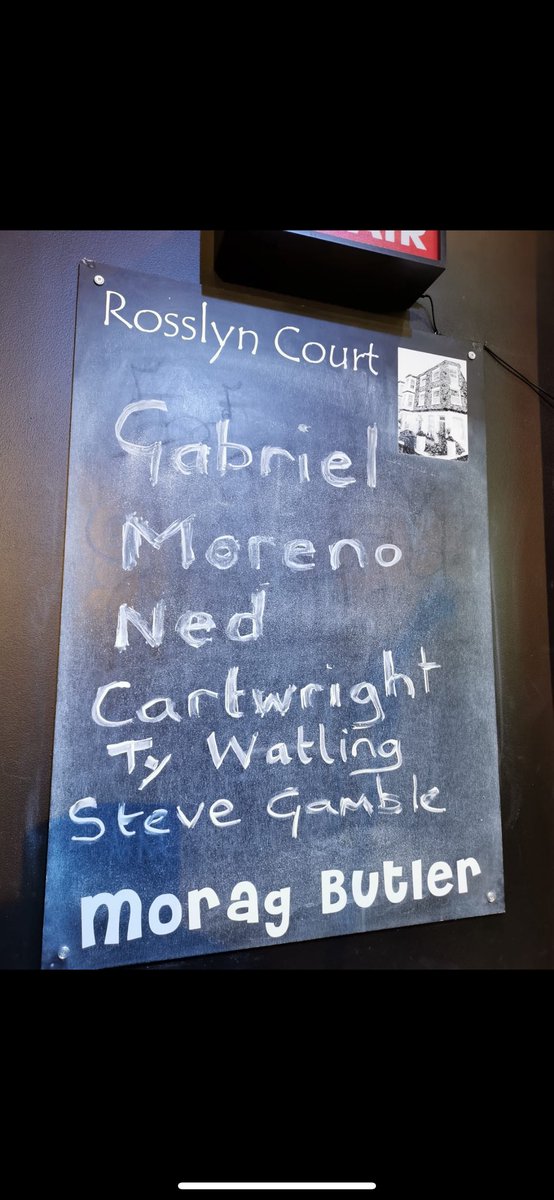 Rosslyn Court
Gabriel
Moreno
Ned
Cartwright
Ty Watling
Steve Gamble
Morag Butler